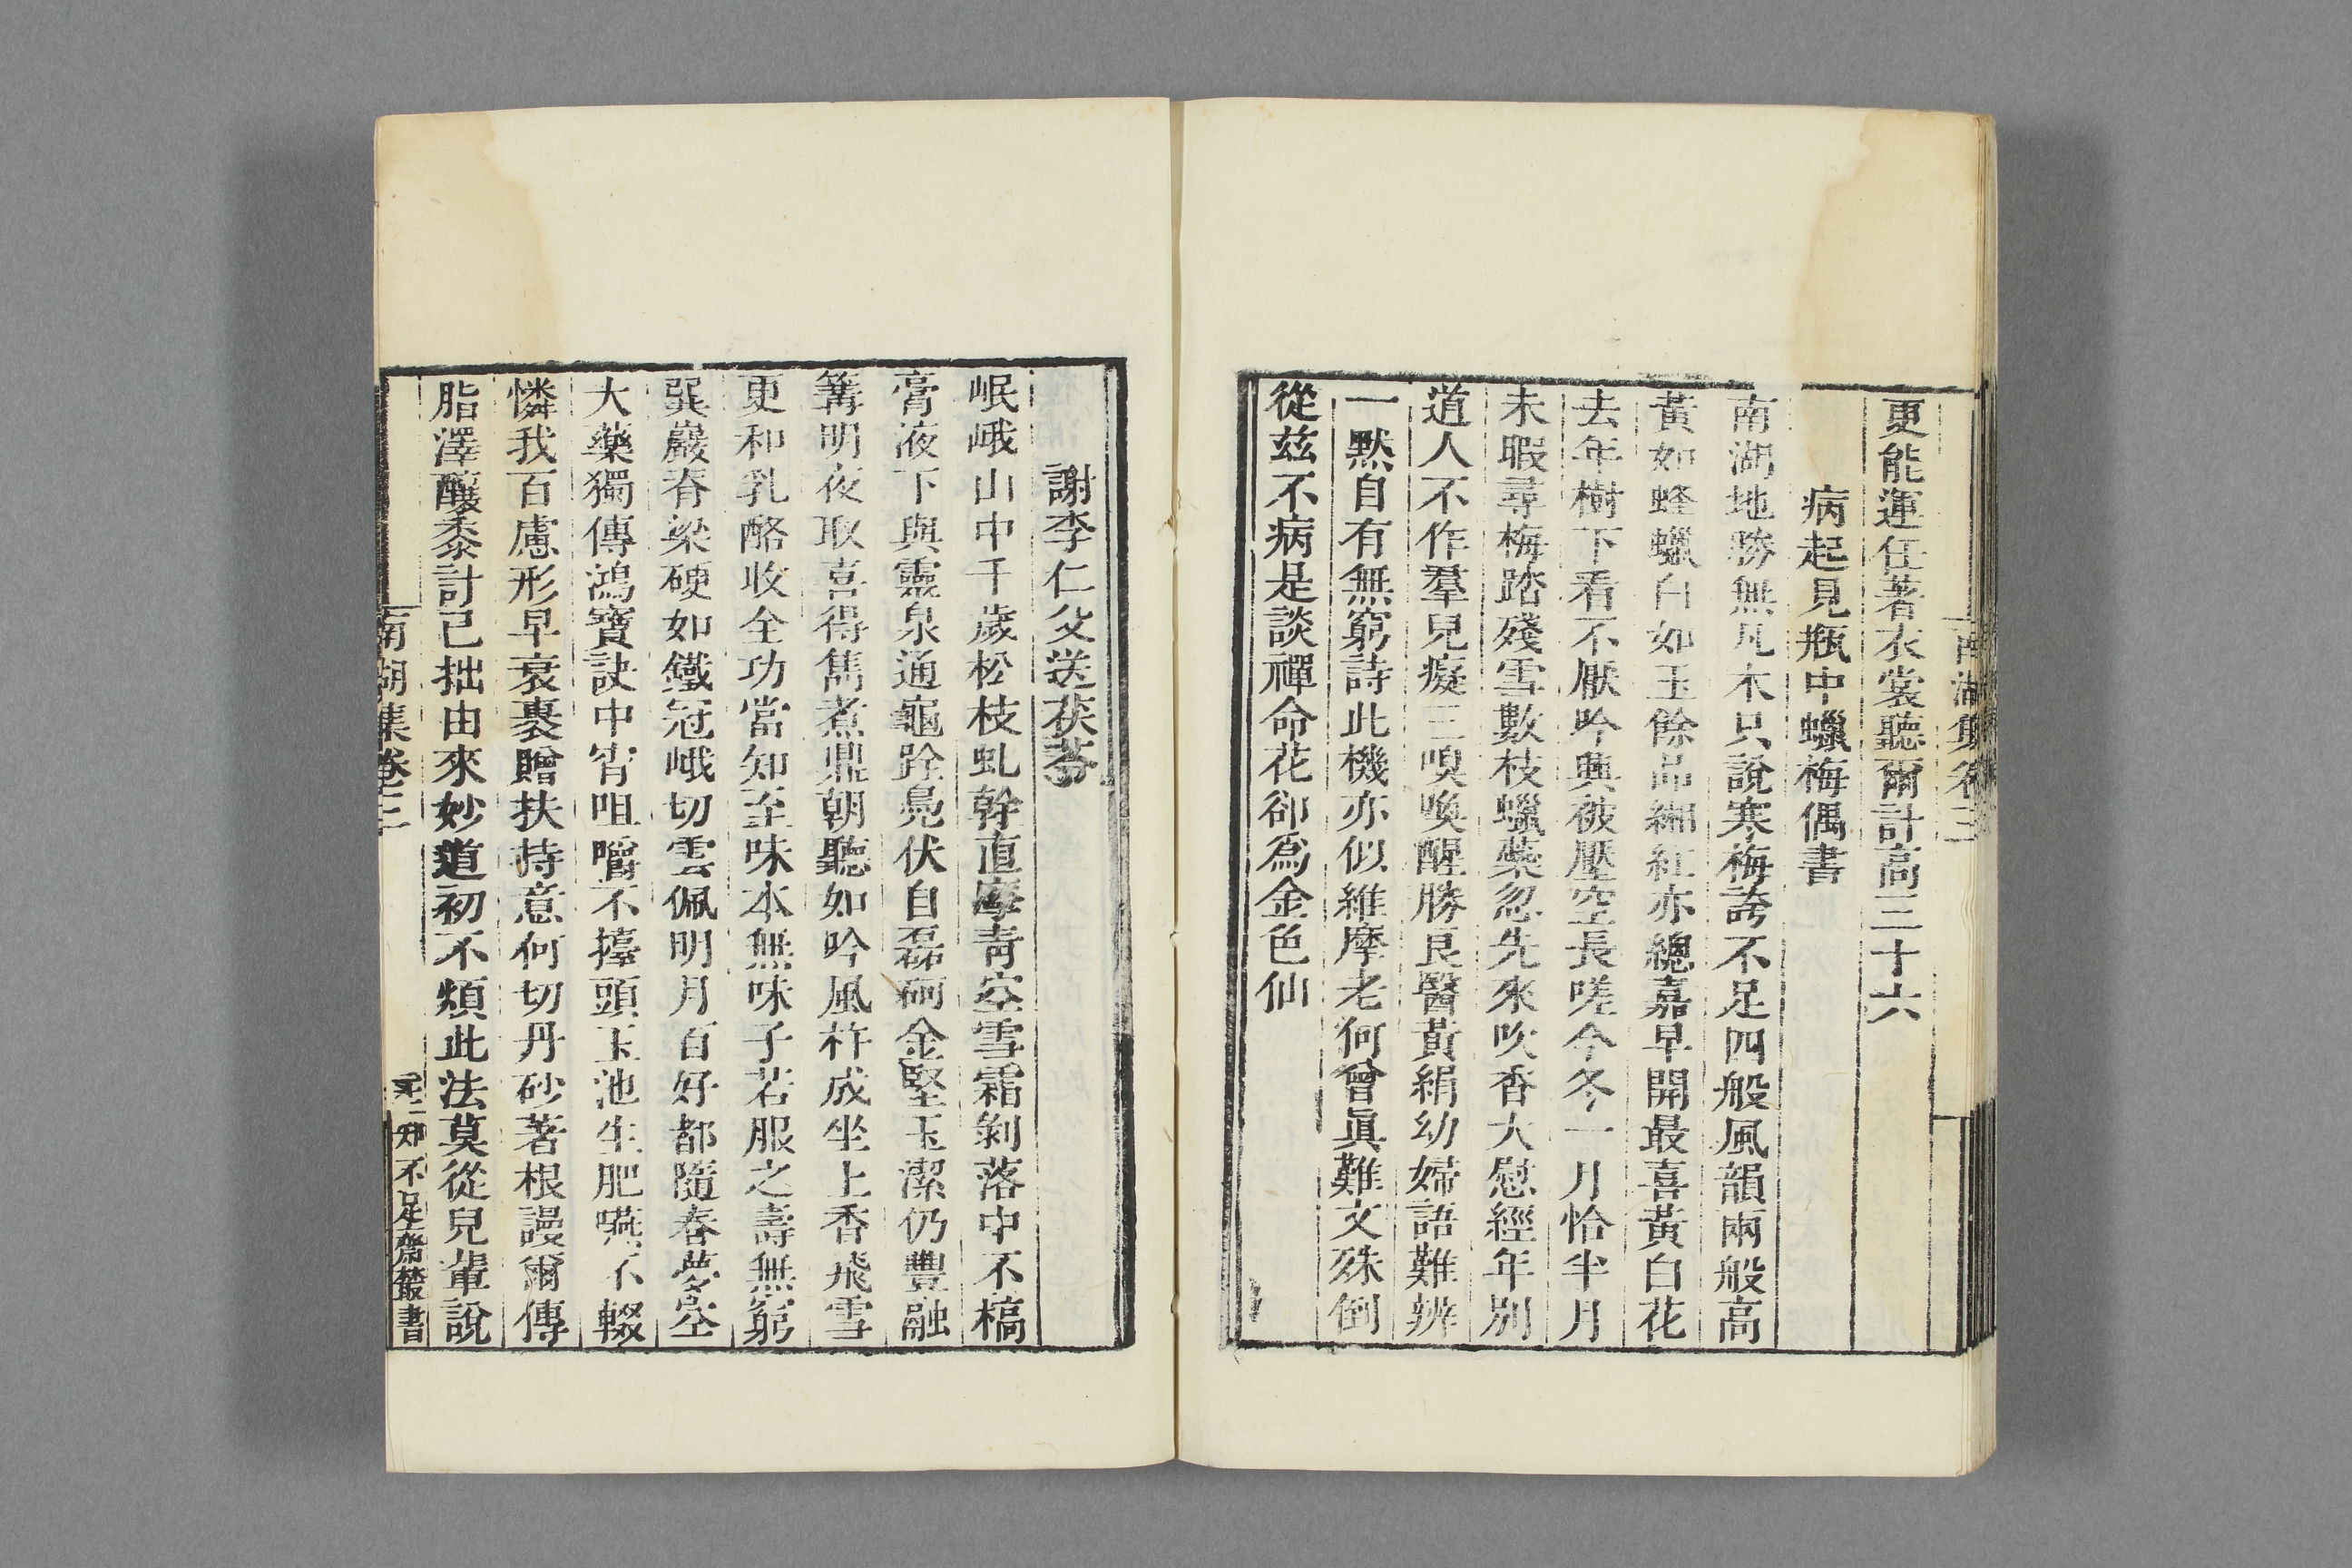 南湖集卷三
更能運任著衣裳聽爾計高三十六
病起見瓶中蠟梅偶書
南湖地勝無凡木只說寒梅誇不足四般風韻兩般高
黃如蜂蠟白如玉餘品緗紅亦總嘉早開最喜黃白花
去年樹下看不厭吟興被壓空長嗟今冬一月恰半月
未暇尋梅踏殘雪數枝蠟蘂忽先來吹香大慰經年別
道人不作羣兒癡三嗅喚醒勝良醫黃絹幼婦語難辨
一默自有無窮詩此機亦似維摩老何曾眞難文殊倒
從茲不病是談禪命花卻爲金色仙
謝李仁父送茯苓
岷峨山中千歲松枝虬幹直摩靑空雪霜剝落中不槁
膏液下與靈泉通龜跧鳧伏自磊砢金堅玉潔仍豐融
篝明夜取喜得雋煮鼎朝聽如吟風杵成坐上香飛雪
更和乳酪收全功當知至味本無味子若服之壽無窮
巽巖脊梁硬如鐵冠峨切雲佩明月百好都隨春夢空
大藥獨傳鴻寶訣中宵咀嚼不擡頭玉池生肥嚥不輟
憐我百慮形早衰裹贈扶持意何切丹砂著根謾爾傳
脂澤釀黍計已拙由來妙道初不煩此法莫從兒輩說
南湖集卷三
知不足齋叢書